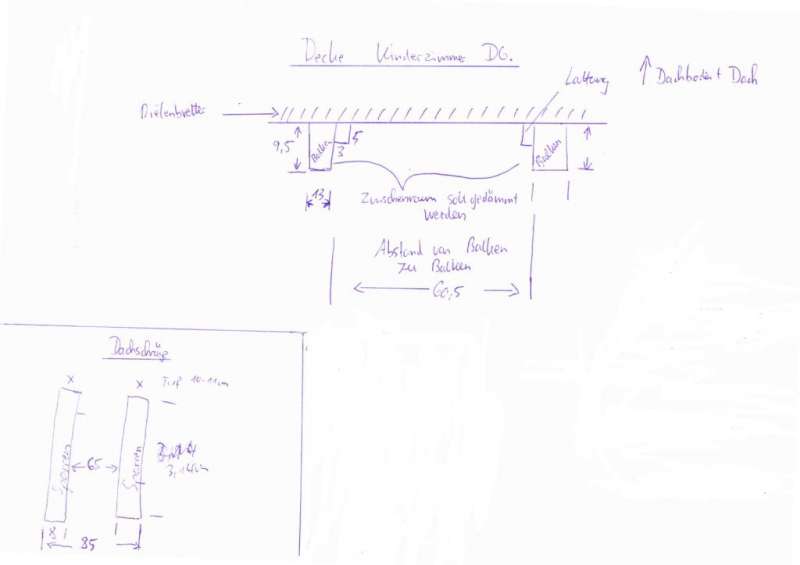 Decke Kinderzimmer DG.
Lattung
Dachboden + Dach
Dielenbretter
9,5
Balken
3
5
Balken
13
Zwischenraum soll gedämmt
werden
Abstand von Balken
zu Balken
60,5
Dachschräge
x
x
Tief 10-11cm
Sparren
65
Sparren
85